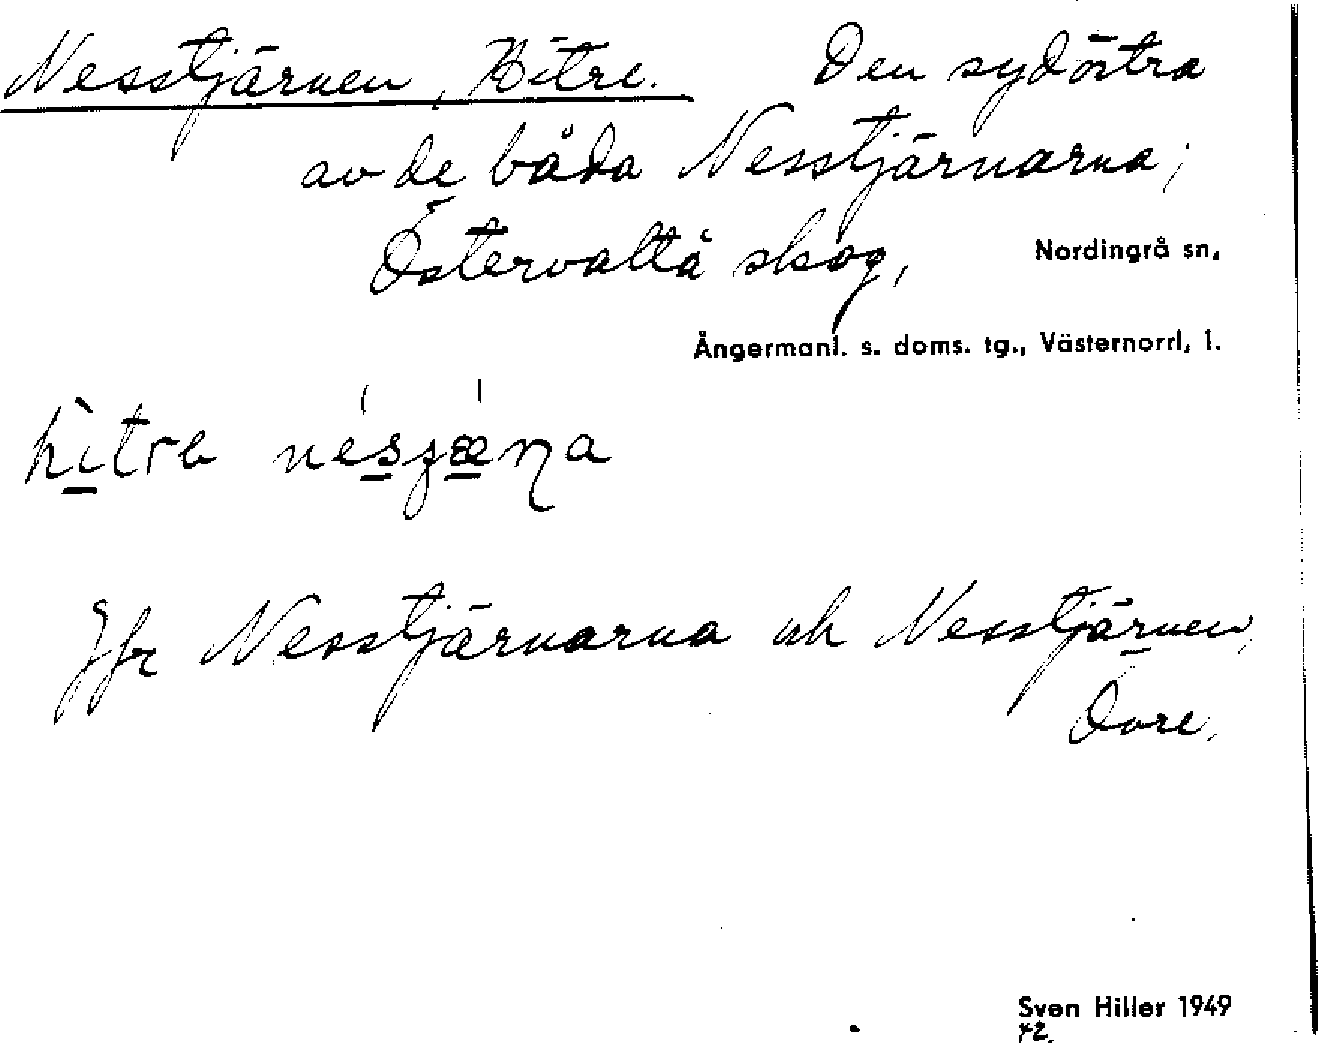 Nesstjärnen, Hitre. Den sydöstra
av de båda Nesstjärnarna;
Östervaltå skog, Nordingrå sn,
Ångermanl. s. doms. tg., Västernorrl, l.
hitre
Jfr Nesstjärnarna och Nesstjärnen,
Övre.
Sven Hiller 1949